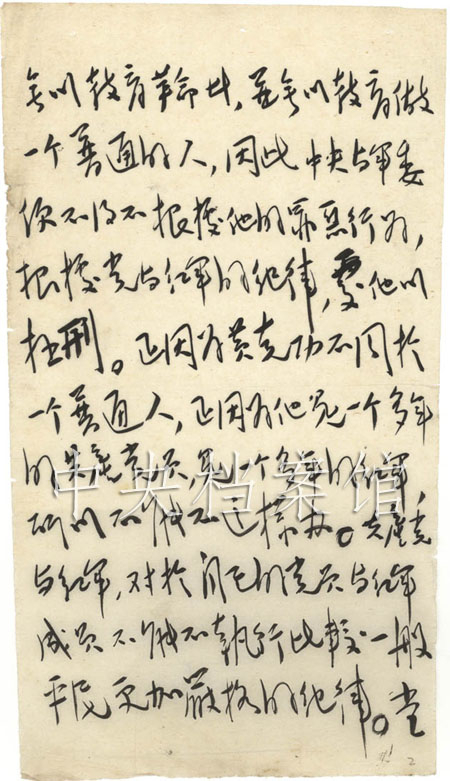 无以教育革命者，并无以教育做
一个普通的人，因此中央与军委
便不得不根據他的罪恶行为，
根據党与红军的纪律，處他以
极刑。正因为黄克功不同於
一个普通人，正因为他是一个多年
的共産党员，是一个多年的红军，
所以不能不这样办。共産党
与红军，对於自己的党员与红军
成员不能不執行比较一般
平民更加嚴格的纪律。當
2
中央档案馆